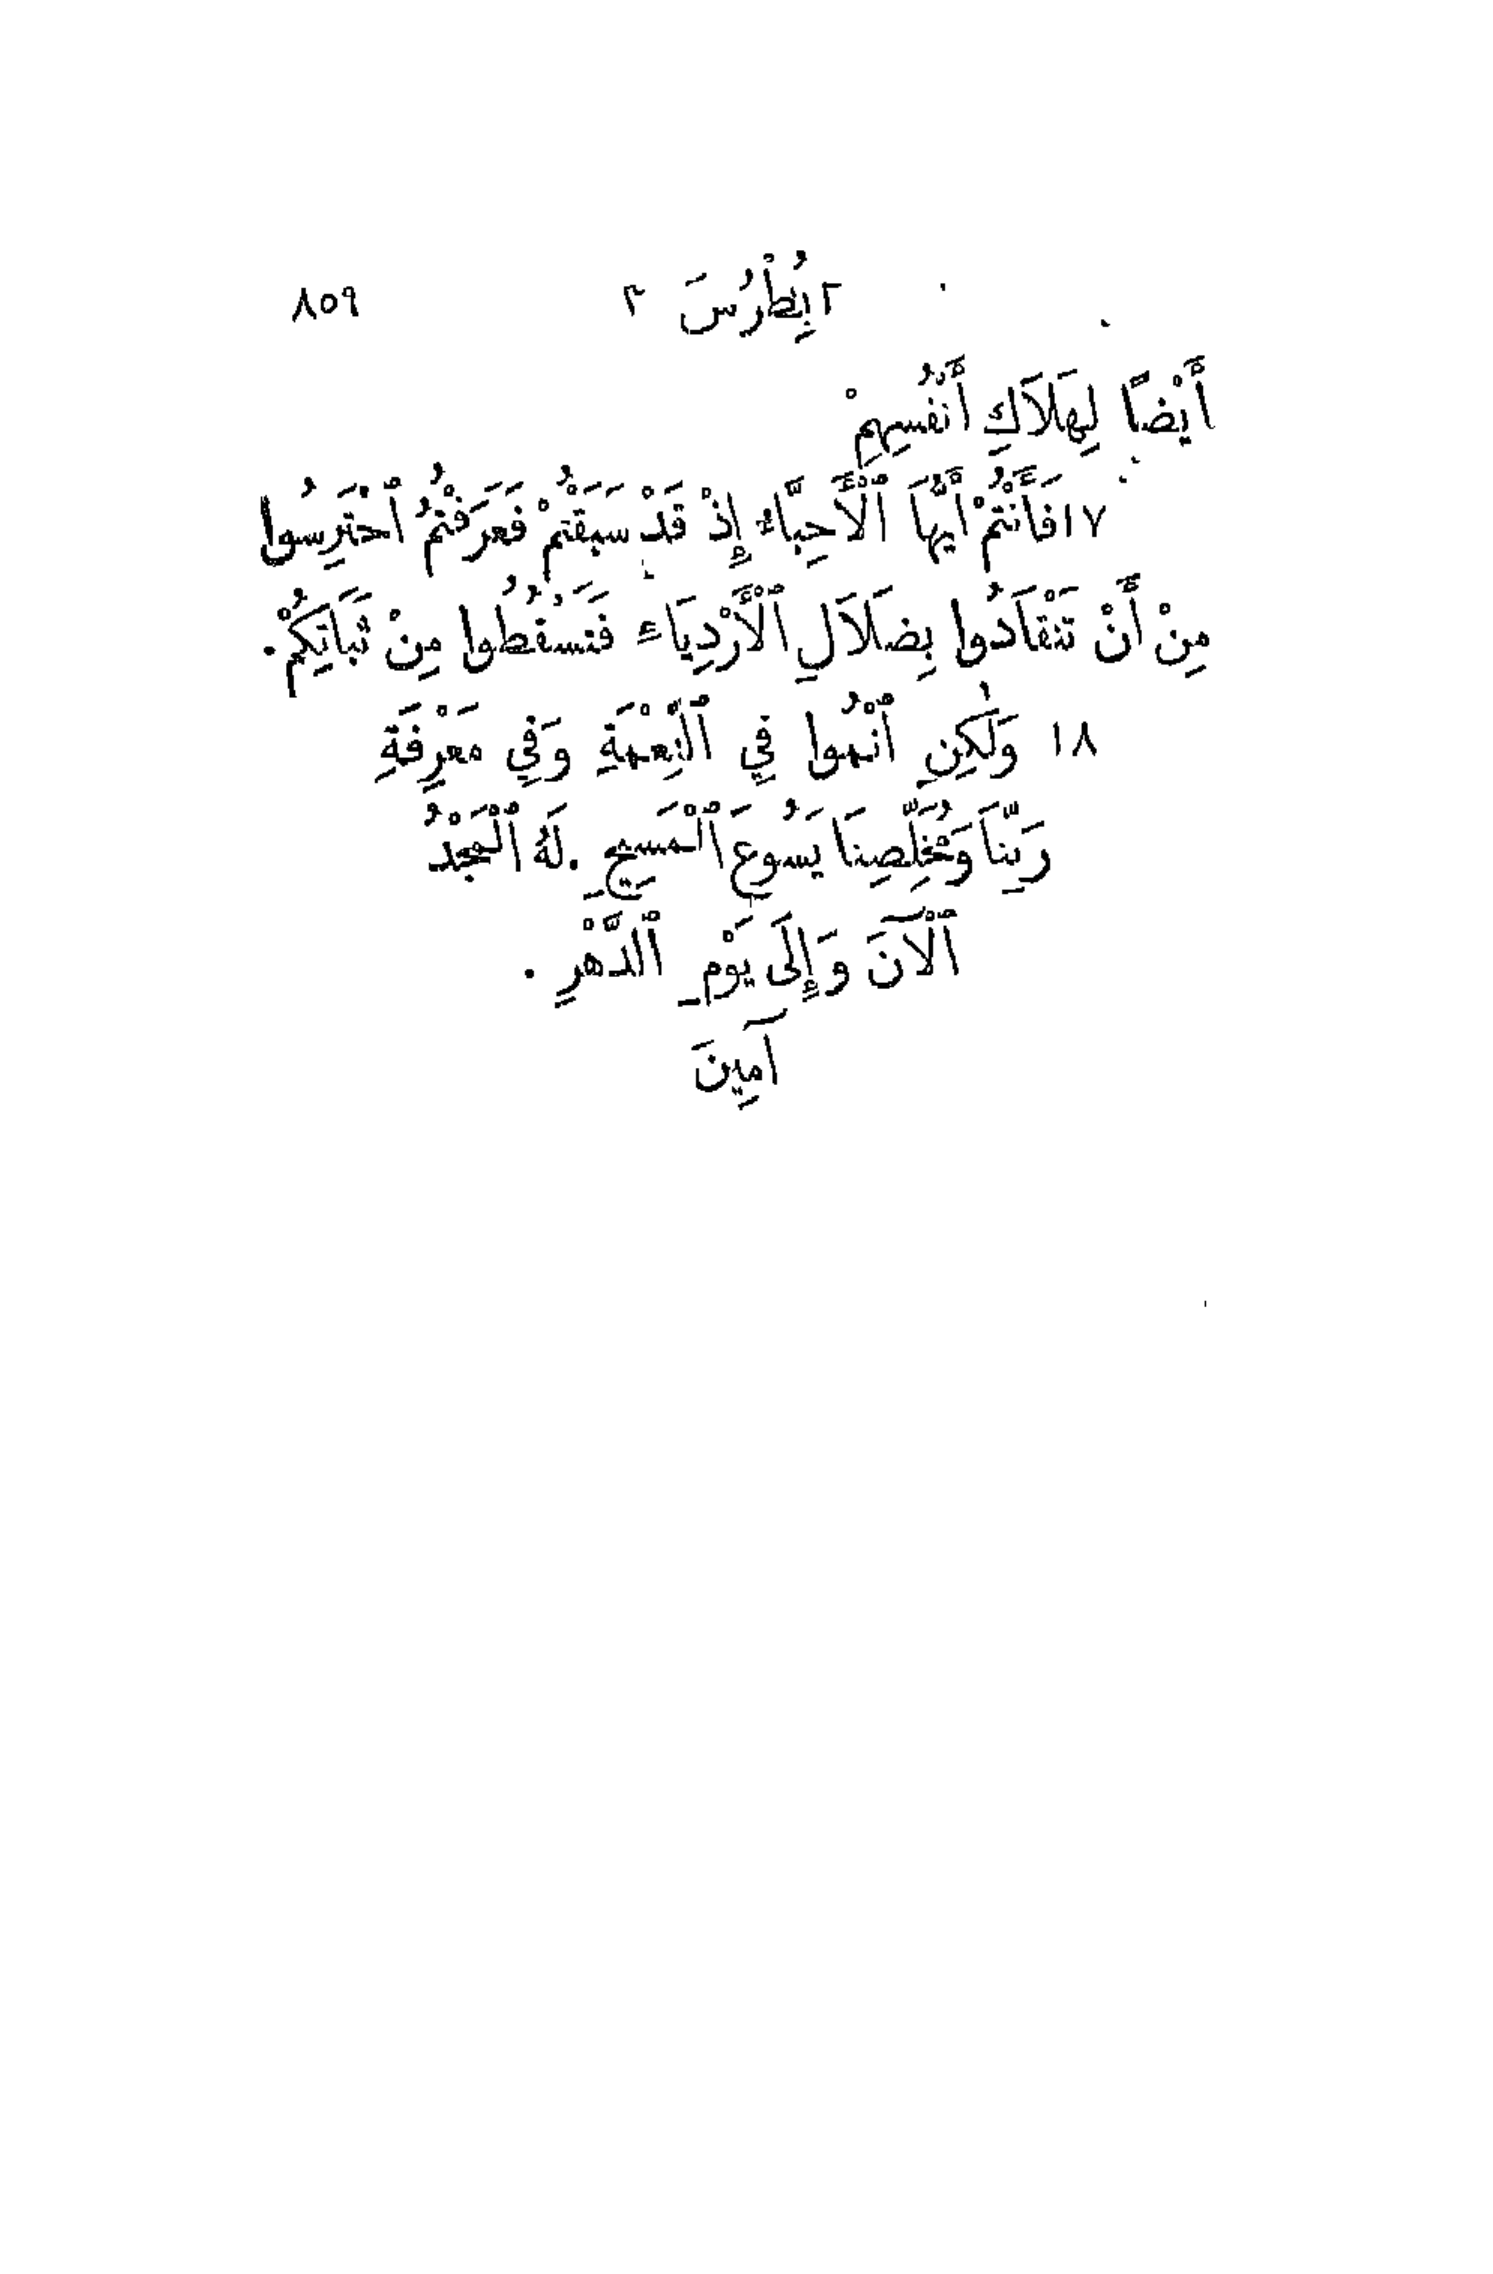 ٢ بُطْرُسَ ٣ ٨٥٩
أَيْضًا لِهَلَاكِ أَنْفُسِهِمْ
١٧ فَأَنْتُمْ أَيُّهَا ٱلْأَحِبَّاءُ إِذْ قَدْ سَبَقْتُمْ فَعَرَفْتُمُ ٱحْتَرِسُوا
مِنْ أَنْ تَنْقَادُوا بِضَلَالِ ٱلْأَرْدِيَاءِ فَتَسْقُطُوا مِنْ ثَبَاتِكُمْ.
١٨ وَلٰكِنِ ٱنْمُوا فِي ٱلنِّعْمَةِ وَفِي مَعْرِفَةِ
رَبِّنَا وَمُخَلِّصِنَا يَسُوعَ ٱلْمَسِيحِ. لَهُ ٱلْمَجْدُ
ٱلْآنَ وَإِلَى يَوْمِ ٱلدَّهْرِ.
آمِينَ